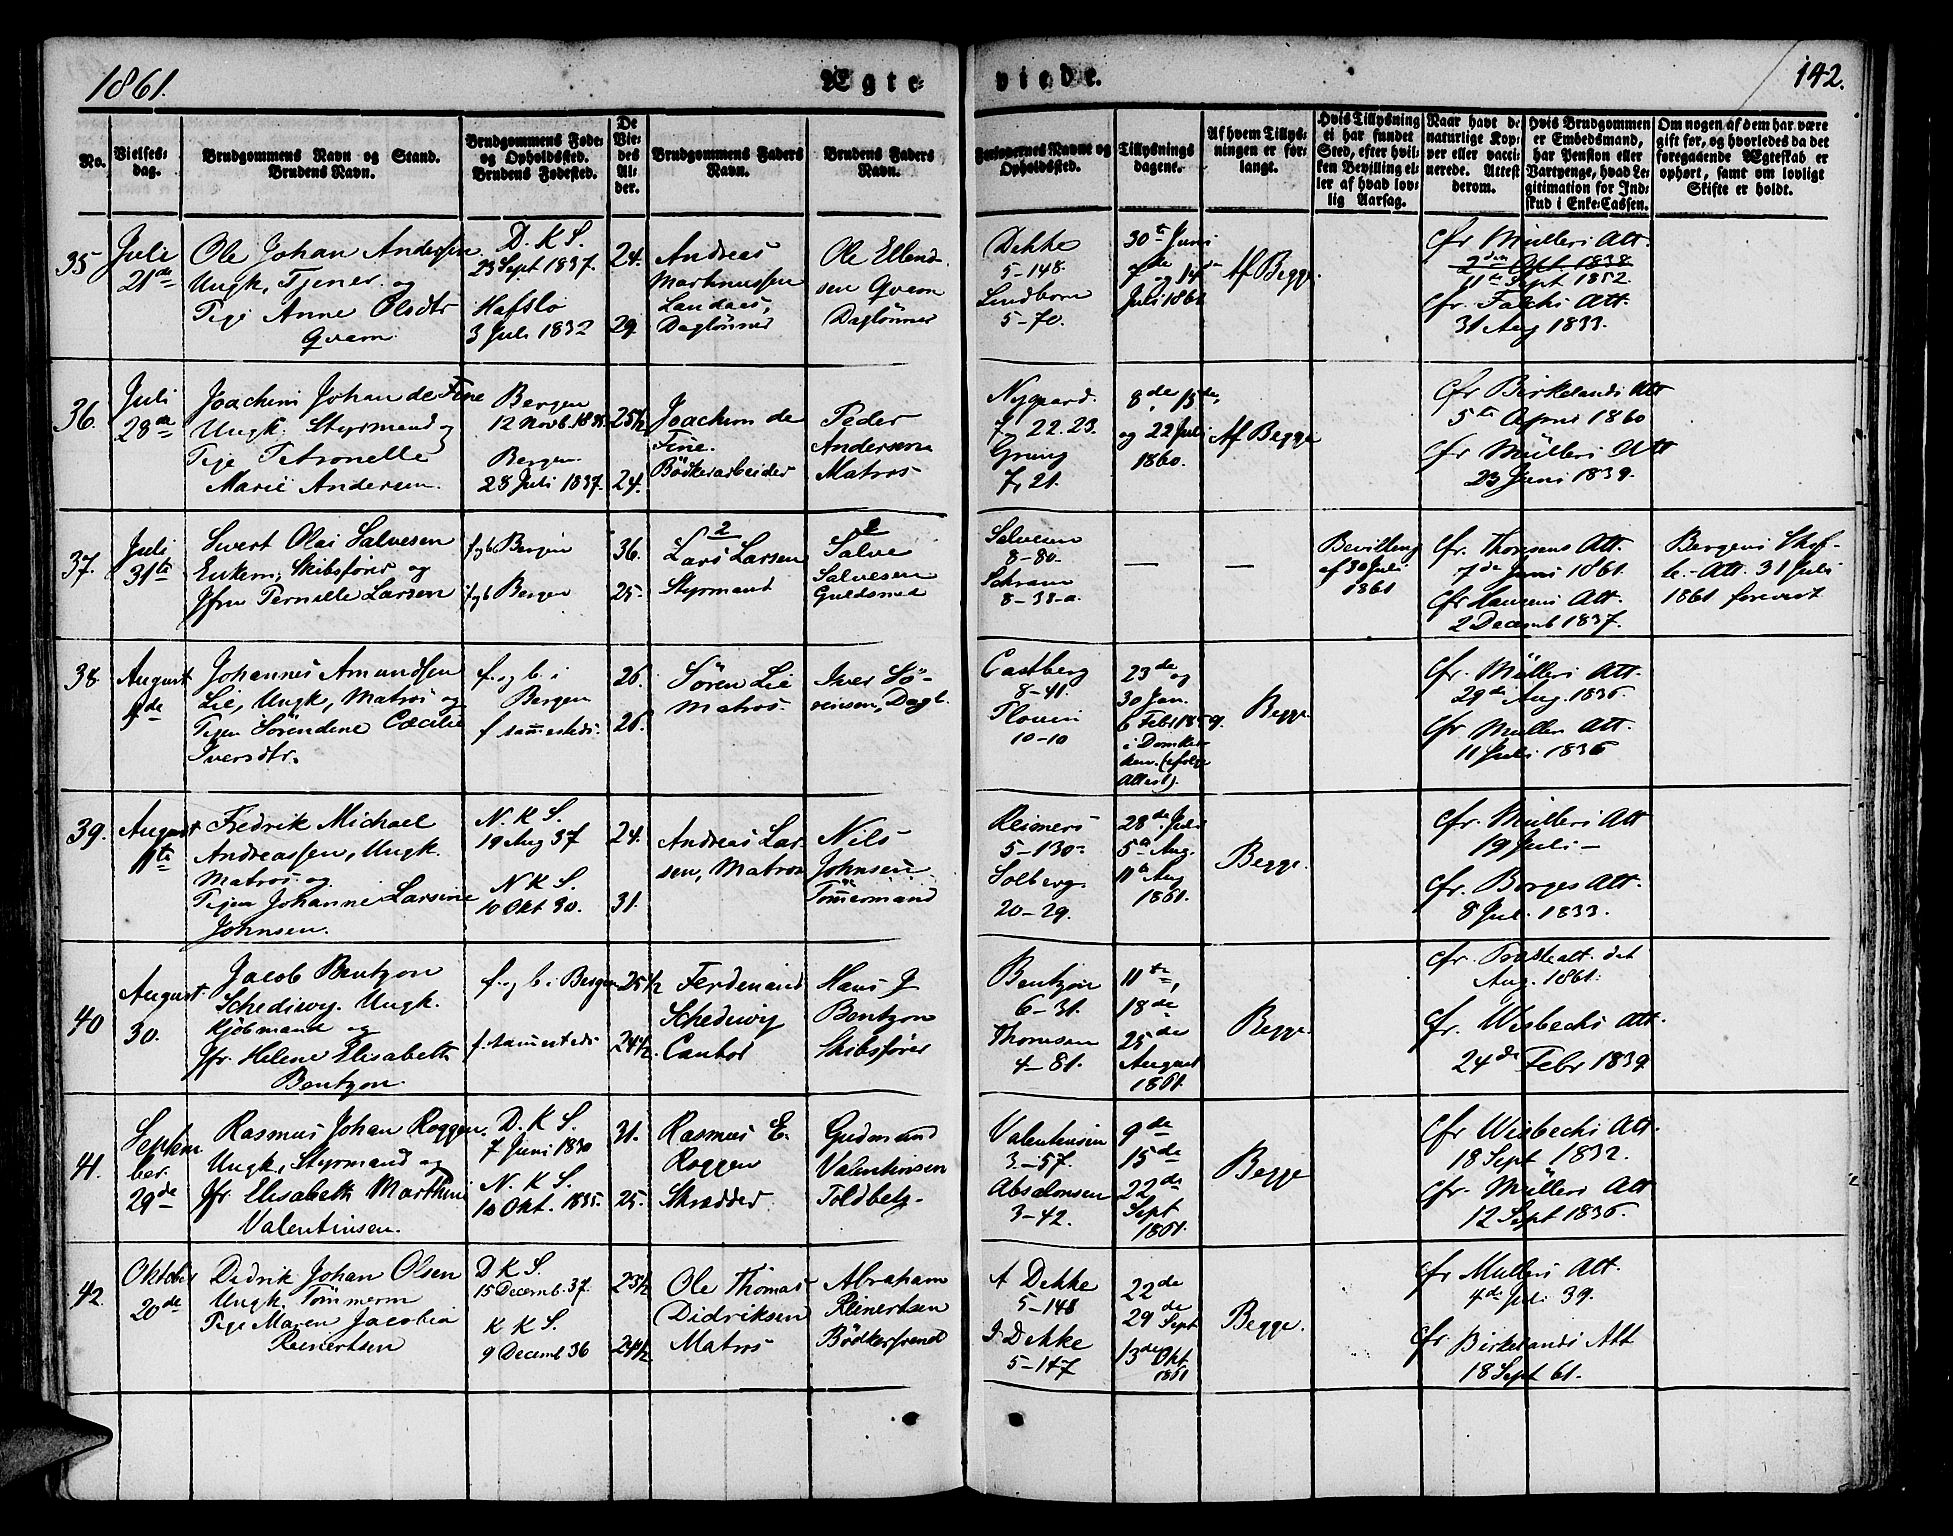 1861.
Ægte
viede.
142.
No.
Vielses-
dag.
Brudgommens Navn og Stand.
Brudens Navn.
Brudgommens Føde-
og Opholdssted.
Brudens Fødested.
De
Vie-
des
Al-
der.
Brudgommens Faders
Navn.
Brudens Faders
Navn.
Forlovernes Navne og
Opholdssted.
Tillysnings
dagene.
Af hvem Tillys-
ningen er for-
langt.
Hvis Tillysning
ei har fundet
Sted, efter hvil-
ken Bevilling el-
ler af hvad lov-
lig Aarsag.
Naar havt de
naturlige Kop-
per eller vacci-
nerede. Attest
derom.
Hvis Brudgommen
er Embedsmand,
har Pension eller
Vartpenge, hvad Le-
gitimation for Ind-
skud i Enke-Cassen.
Om nogen af dem har være
gift for, og hvorledes da det
foregaaende Ægteskab er
ophørt, samt om lovligt
Skifte er holdt.
35
Juli
21de
Ole Johan Andersen
Ungk, Tjener og
Pige Anne Olsdtr
Qvam
D. K S.
23 Sept 1837.
Hafslo
3 Juli 1832
24.
29.
Andreas
Martinussen
Landaas,
Daglønner
Ole Ellend-
sen Qvam
Dagløner
Dekke
5-148.
Lindborn
5-70.
30te Juni
7de og 14de
Juli 1861
Af Begge.
cfr Mülleri Att.
2den Oct 1838
11te Sept 1852.
cfr. Falchs Att.
31 Aug 1833.
36.
Juli
28de
Joachim Johan de Fine
Ungk. Styrmand og
Pige Petronelle
Marie Andersen.
Bergen
12 Novb. 1835
Bergen
28 Juli 1837.
25½
24.
Joachim de
Fine.
Bödkerarbeider
Peder
Andersen
Matros
Nygaard.
7, 22. 23.
Grung
7, 21.
8de, 15de,
og 22 Juli
1860.
Af Begge
cfr Birkelands Att
5te April 1860
cfr Mülleri Att
23 Juni 1839.
37.
Juli
31te
Sivert Olai Salvesen
Enkem, Skibsfører og
Jfru Pernille Larsen
f. g b Bergen
f. g b Bergen
36.
25.
2
Lars Larsen
Styrmand
1
Salve
Salvesen
Guldsmed
Salvesen
8-80.
Schram
8-38-a.
—
—
Bevilling
af 30 Juli
1861
cfr. Thomsens Att.
7de Juni 1861.
cfr Hansens Att.
2 Decemb 1837.
Bergens Skif-
te.- Att. 31 Juli
1861 forevist
38
August
4de
Johannes Amundsen
Lie, Ungk, Matros og
Pigen Sörendene Cæcilie
Iversdtr.
f. og b. i
Bergen
f sammesteds.
26.
26.
Sören Lie
Matros.
Iver Sö-
rensen, Dagl.
Castberg
8-41.
10-10
23de og
30 Jan.
6 Febr 1859.
i Domkir-
ken. (ifølge
Attest).
Begge.
cfr. Mülleri Att.
29de Aug. 1836.
cfr Mülleri Att.
11 Juli 1836
39.
August
11te
Fredrik Michael
Andreassen, Ungk.
Matros og
Pigen Johanne Larsine
Johnsen.
N. K S.
19 Aug 37
N K S.
10 Okt 30.
24.
31.
Andreas Lar-
sen, Matros
Nils
Johnsen
Tømmermand
Reimers
5-130-
Solberg
20-29.
28de Juli
5te Aug.
11te Aug
1861.
Begge.
cfr. Mülleri Att
19 Juli —
cfr. Borges Att.
8 Jul. 1833.
40
August
30.
Jacob Bentzon
Schediwy. Ungk.
Kjøbmand og
Jfr. Helene Elisabeth
Bentzon.
f. og b. i Bergen
f. sammesteds
25½
24½.
Ferdenand
Schediwy
Cantor
Hans J
Bentzon
Skibsfører
Bentzon
6-31.
Thomsen
4-81.
11te,
18de
25de
August
1861.
Begge.
Aug. 1861.
cfr. Wisbechs Att.
24de Febr 1839
41.
Septem
ber.
29de
Rasmus Johan Roggen.
Ungk, Styrmand og
Jfr Elisabeth Marthine
Valentinsen.
D. K S.
7 Juni 1830
N. K S.
10 Okt. 1835.
31.
25.
Rasmus E.
Roggen
Skrædder
Gudmand
Valentinsen
Toldbetj-
Valentinsen
3-57.
Absalonsen
3-42.
9de
15de
22de
Sept
1861.
Begge
cfr Wisbechs Att.
18 Sept 1832.
cfr. Mülleri Att
12 Sept 1836.
42.
Oktober
20de
Didrik Johan Olsen
Ungk. Tömmerm
Pige Maren Jacobia
Reinertsen
D K S.
15 Decemb. 37.
K K S.
9 Decemb 36
23½
24½
Ole Thomas
Didriksen
Matros
Abraham
Reinertsen
Bödkersvend
A Dekke
5-148
J. Dekke
5-147
22de
29de Sept
13de Okt
1861
Begge.
cfr Mulleri Att.
4de Juli 39.
cfr Birkelands Att
18 Sept 61.